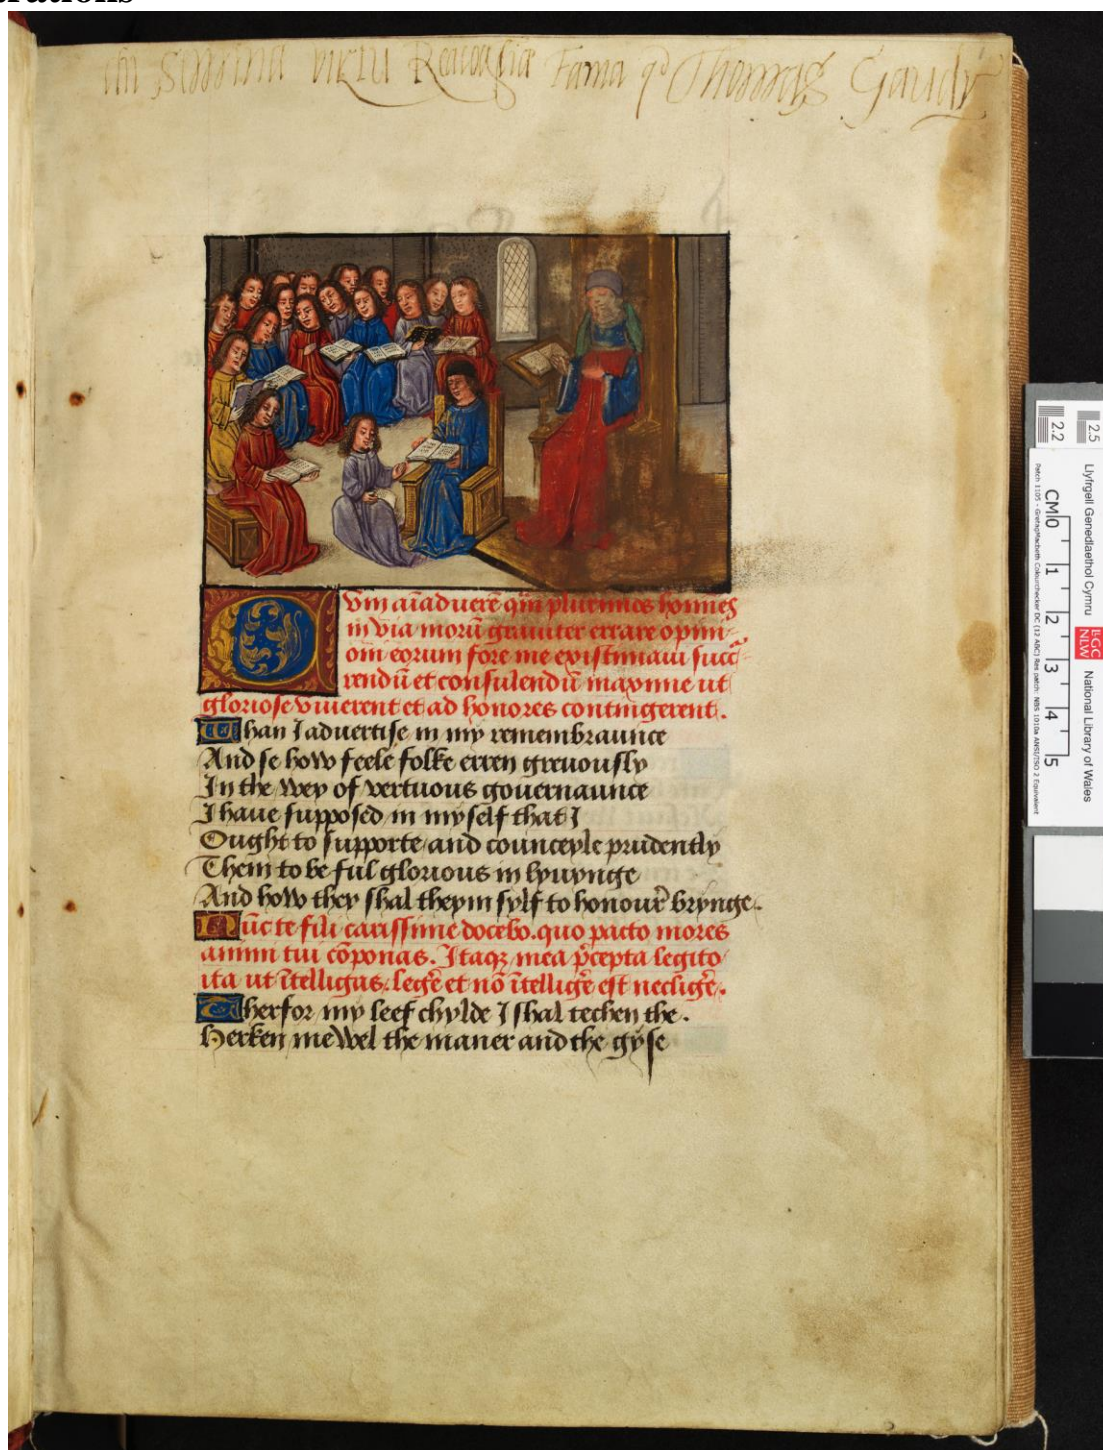 trations
chi semina virtu Racoglie Fama qd Thomas Gaudy
Cum aīaduerē q̄m plurimos homīes
in via morū grauiter errare opini-
oni eorum fore me existimaui succ̄-
rendū et consulendū maxime ut
gloriose viuerent et ad honores contingerent.
Whan I aduertise in my remembraunce
And se how feele folke erren greuously
In the wey of vertuous gouernaunce
I haue supposed in my self that I
Ought to supporte and counceyle prudently
Them to be ful glorious in lyuynge
And how they shal theym sylf to honour brynge.
Nūc te fili carissime docebo. quo pacto mores
animi tui cōponas. Itaqꝫ mea p̄cepta legito
ita ut ītelligas. legē et nō ītelligē est necligē.
Therfor my leef chylde I shal techen the.
Herken me wel the maner and the gyse
2.2
2.5
Llyfrgell Genedlaethol Cymru LLGC NLW National Library of Wales
CM 0 1 2 3 4 5